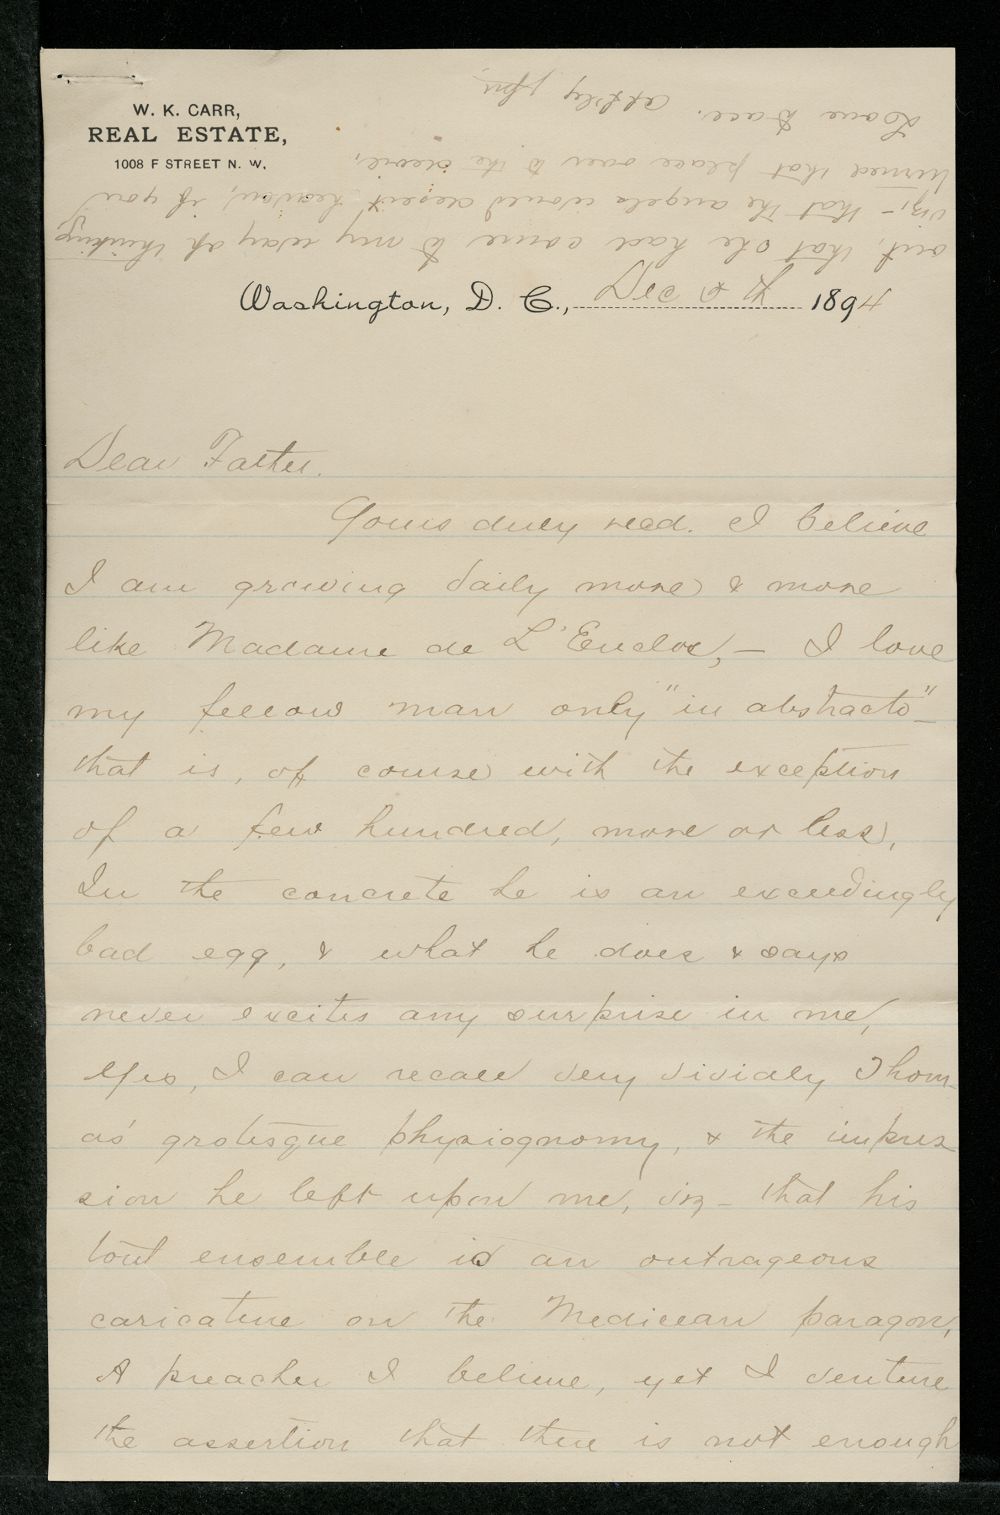 W. K. CARR,
REAL ESTATE,
1008 F STREET N. W.
out, that she had come to my way of thinking
viz:- that the angels would desert heaven, if you
turned that place over to the
Love to all.
Washington, D. C., Dec 5th 1894
Dear Father.
Yours duly recd. I believe
I am growing daily more & more
like Madame de L'Enclos, — I love
my fellow man only "in abstracto" —
that is, of course with the exception
of a few hundred, more or less,
In the concrete he is an exceedingly
bad egg, & what he does & says
never excites any surprise in me,
Yes, I can recall very vividly Thom-
as' grotesque physiognomy, & the impres-
sion he left upon me, viz — that his
tout ensemble is an outrageous
caricature on the Medicean paragon,
A preacher I believe, yet I venture
the assertion that there is not enough